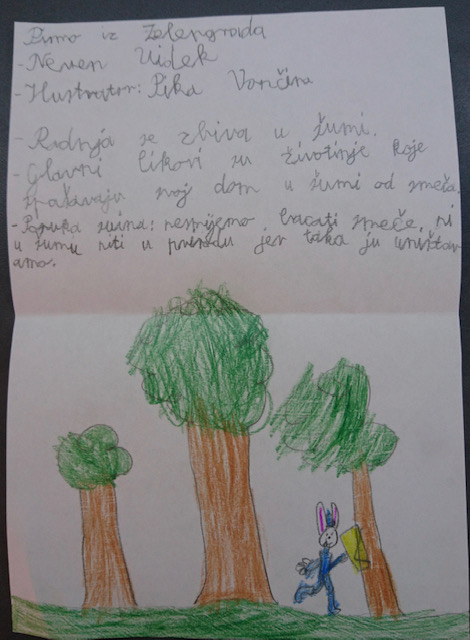 Pismo iz Zelengrada
- Neven Videk
- Ilustrator: Pika Vončina
- Radnja se zbiva u šumi.
- Glavni likovi su životinje koje
spašavaju svoj dom u šumi od smeća.
- Poruka : nesmijemo bacati smeće ni
u šumu niti u prirodu jer tako ju uništav
amo.